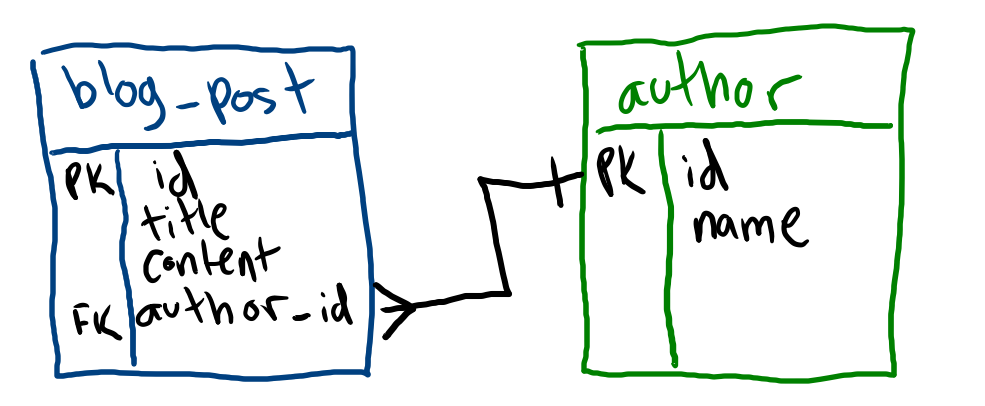 blog_post
PK id
title
content
FK author_id
author
PK id
name